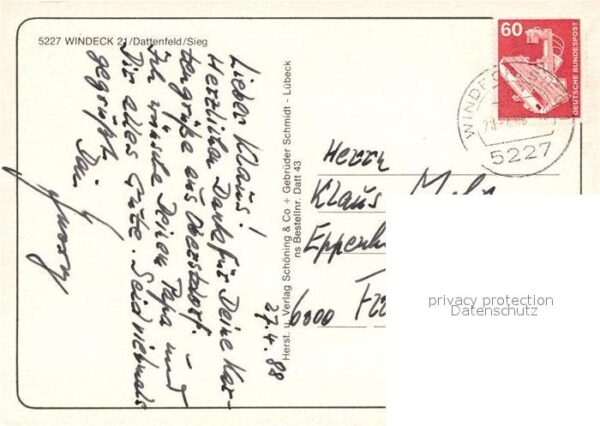 5227 WINDECK 21/Dattenfeld/Sieg
Lieber Klaus!
Herzlichen Dank für Deine Kar-
tengrüße aus Oberstdorf. –
Ich wünsche Deinem Papa und
Dir alles Gute. Seid vielmals
gegrüßt.
Dein
27.4.88
Herst. u. Verlag Schöning & Co + Gebrüder Schmidt - Lübeck
ns Bestellnr. Datt 43
60
DEUTSCHE BUNDESPOST
WINDECK
5227
Herrn
Klaus
6000
privacy protection
Datenschutz